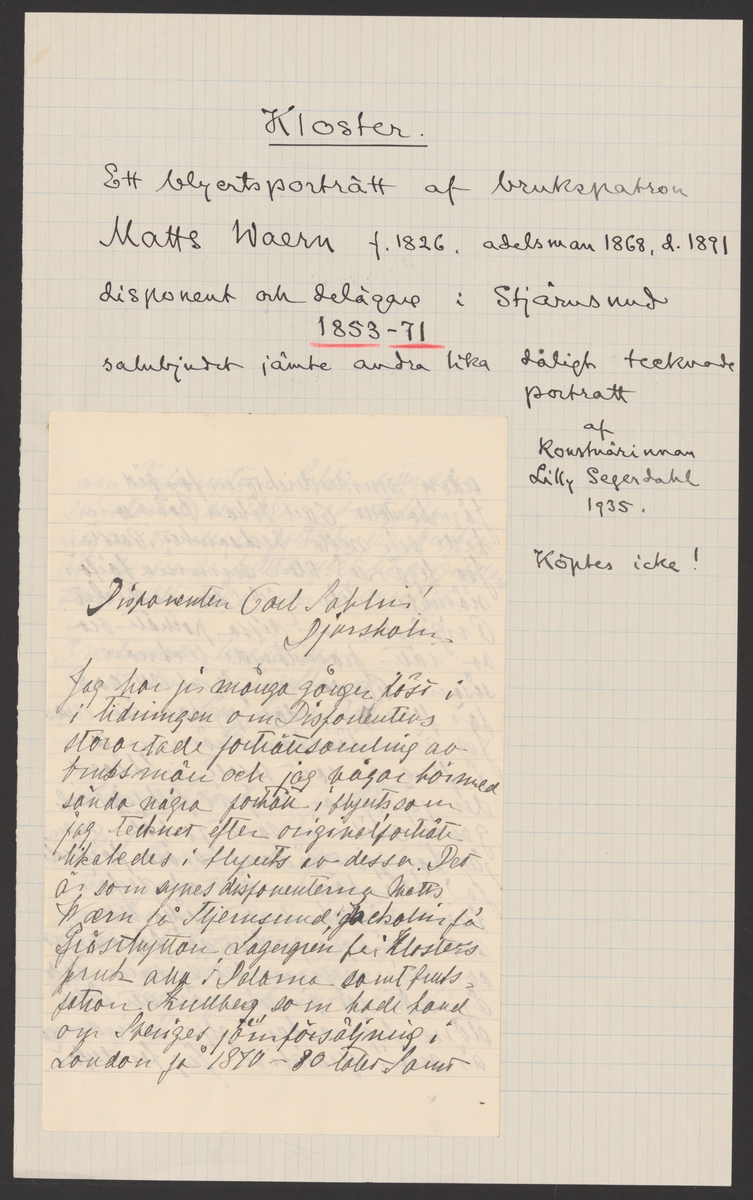 Kloster.
Ett blyertsporträtt af brukspatron
Matts Waern f. 1826. adelsman 1868, d. 1891
disponent och delägare i Stjärnsund
1853-71
salubjudet jämte andra lika dåligt tecknade
porträtt
af
Konstnärinnan
Lilly Segerdahl
1935.
Köptes icke!
Disponenten Carl Sahlin!
Djursholm
Jag har ju många gånger läst i
i tidningen om Disponentens
storartade porträttsamling av
bruksmän och jag vågar härmed
sända några porträtt i blyerts som
jag tecknat efter originalporträtt
likaledes i blyerts av dessa. Det
är som synes disponenterna Matts
Wærn på Stjernsund, på
Gråsthyttan, Lagergren på Klosters
bruk alla i Dalarna samt bruks-
patron Kullberg, som hade hand
om Sveriges järnförsäljning i
London på 1870-80 talet Samt